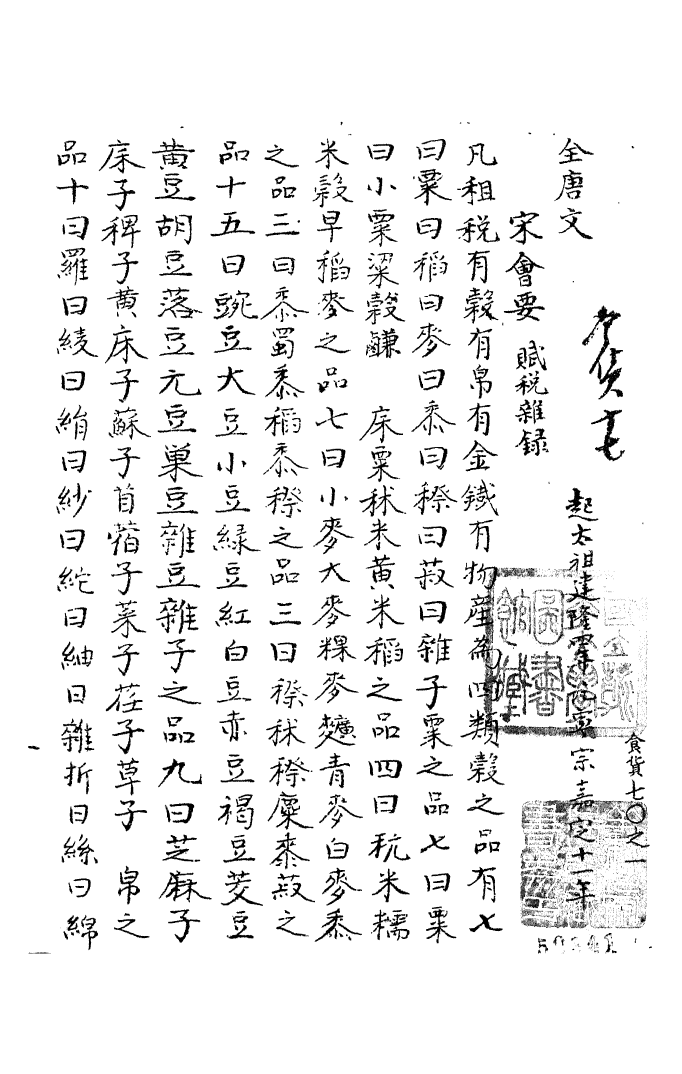 全唐文
食貨七
宋會要 賦稅雜録
起太祖建隆 宗嘉定十一年
食貨七〇之一
凡租稅有穀有帛有金鐵有物産為四類穀之品有七
曰粟曰稻曰麥曰黍曰穄曰菽曰雜子粟之品七曰粟
曰小粟粱穀䶠 床粟秫米黄米稻之品四曰秔米糯
米穀早稻麥之品七曰小麥大麥粿麥䵃青麥白麥黍
之品三曰黍蜀黍稻黍穄之品三曰穄秫穄糜黍菽之
品十五曰豌豆大豆小豆緑豆紅白豆赤豆褐豆茭豆
黄豆胡豆落豆元豆巢豆雜豆雜子之品九曰芝麻子
床子稗子黄床子蘇子苜蓿子菜子荏子草子 帛之
品十曰羅曰綾曰絹曰紗曰絁曰紬曰雜折曰絲曰綿